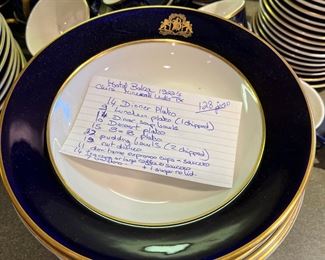 Hotel Baker 1920's
Mineral Wells Tx
128 pcs
14 Dinner Plates
Luncheon plates (1 chipped)
Dinner soup bowls
Dessert plates
B-B plates
22 pudding bowls (2 chipped)
9 nut dishes
14 demitasse espresso cups + saucers
large coffee + saucers
+ 1 sugar no lid